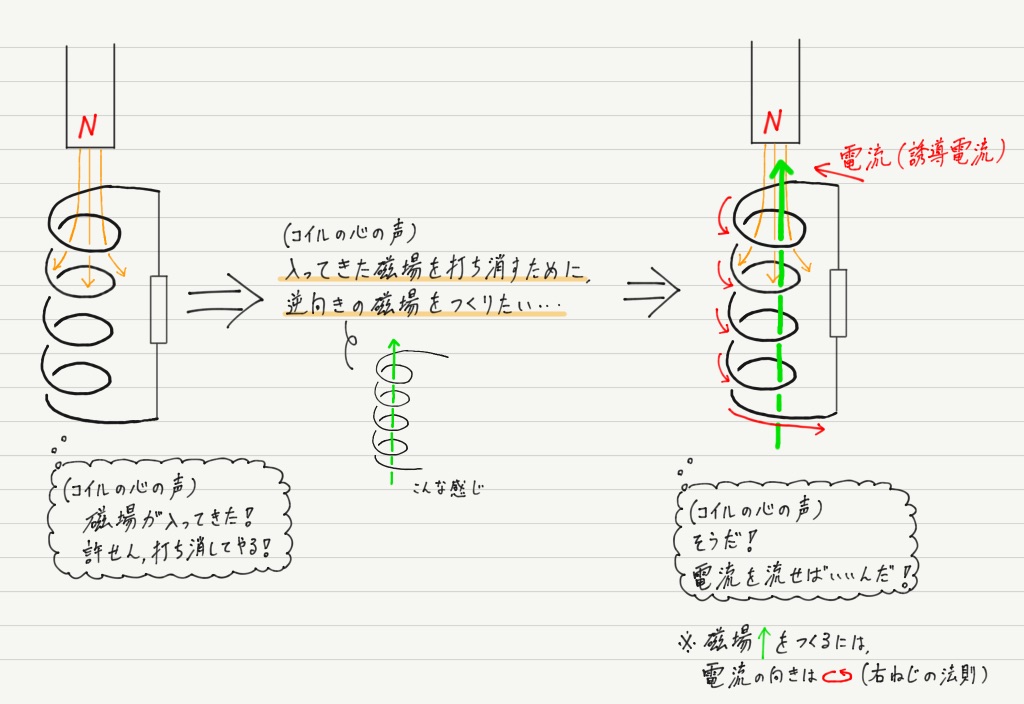 N
(コイルの心の声)
磁場が入ってきた!
許せん,打ち消してやる!
(コイルの心の声)
入ってきた磁場を打ち消すために,
逆向きの磁場をつくりたい…
こんな感じ
N
電流(誘導電流)
(コイルの心の声)
そうだ!
電流を流せばいいんだ!
※磁場↑をつくるには,
電流の向きは (右ねじの法則)